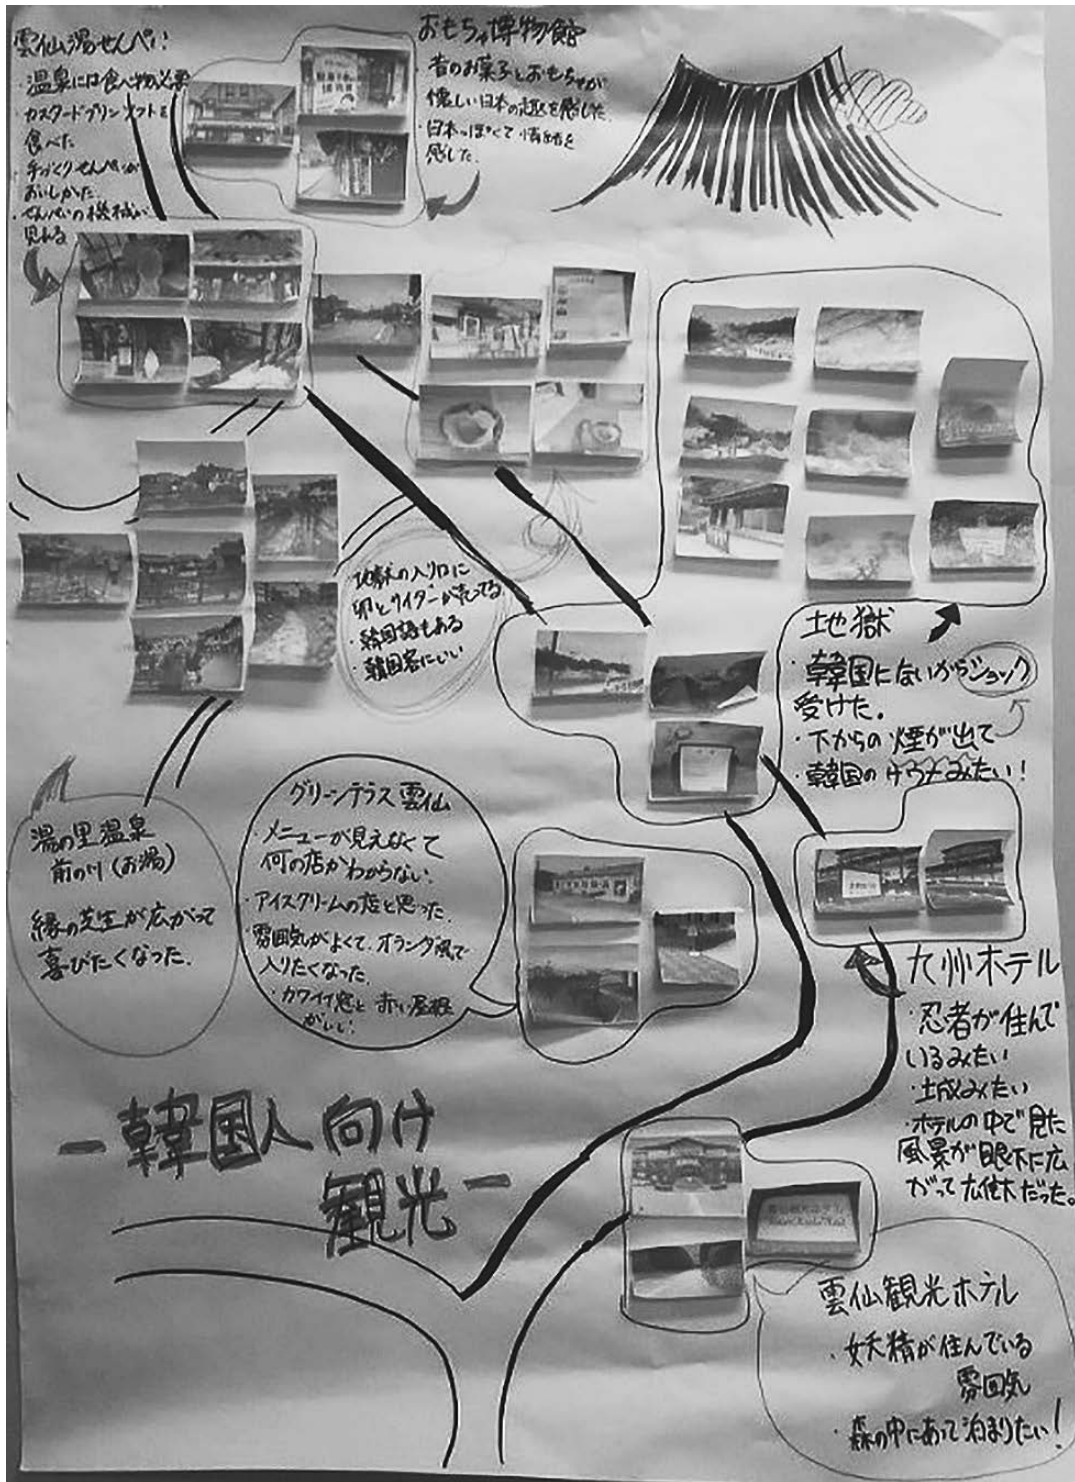 雲仙湯せんぺい
・温泉には食べ物必要
・カスタードプリンソフトを
食べた
・手づくりせんぺいが
おいしかった.
・せんぺいの機械が
見れる
おもちゃ博物館
・昔のお菓子とおもちゃが
懐しい日本の趣を感じた.
・日本っぽくて情緒を
感じた.
・地獄の入り口に
卵とサイダーが売ってる
・韓国語もある
・韓国客にいい
地獄
・韓国にないからショック
受けた.
・下からの煙が出て
・韓国のサウナみたい!
湯の里温泉
前の川(お湯)
緑の芝生が広がって
喜びたくなった.
グリーンテラス雲仙
・メニューが見えなくて
何の店かわからない.
・アイスクリームの店と思った.
・雰囲気がよくて、オランダ風で
入りたくなった.
・カワイイ窓と赤い屋根
がいい.
九州ホテル
・忍者が住んで
いるみたい
・土成みたい
・ホテルの中で見た
風景が眼下に広
がって広大だった。
ー韓国人向け
観光ー
雲仙観光ホテル
・妖精が住んでいる
雰囲気
・森の中にあって泊まりたい!